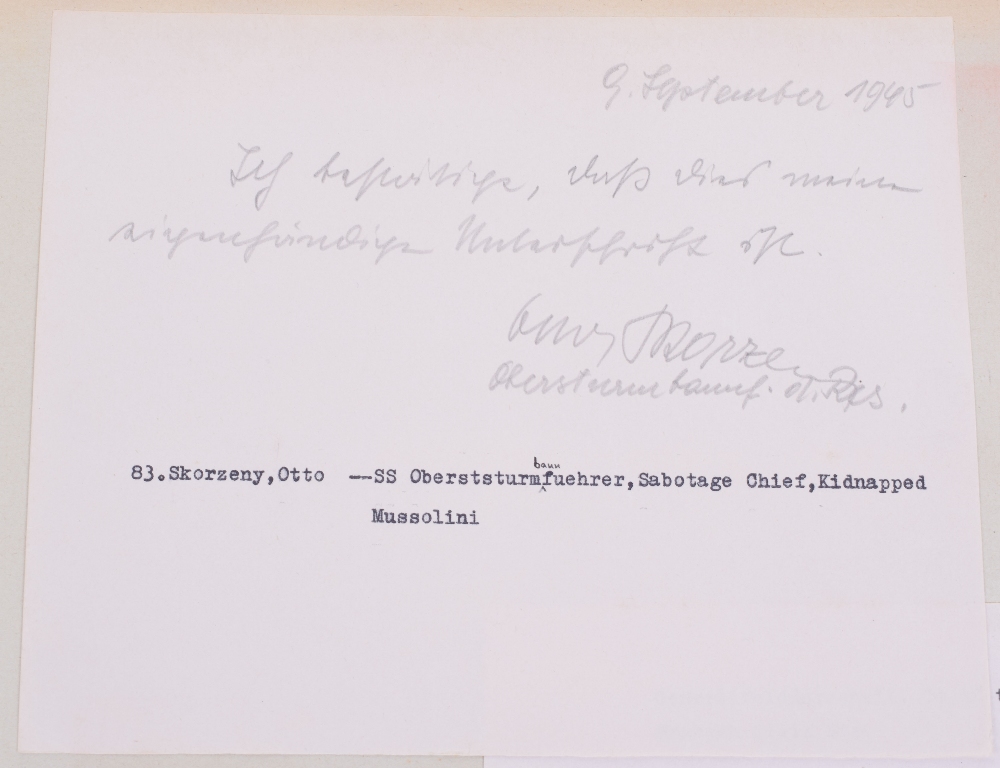 9. September 1945
Ich bestätige, daß dies meine
eigenhändige Unterschrift ist.
Otto Skorzeny
Obersturmbannf. d. Res.
bann
83.Skorzeny,Otto —SS Oberststurmfuehrer,Sabotage Chief,Kidnapped
Mussolini